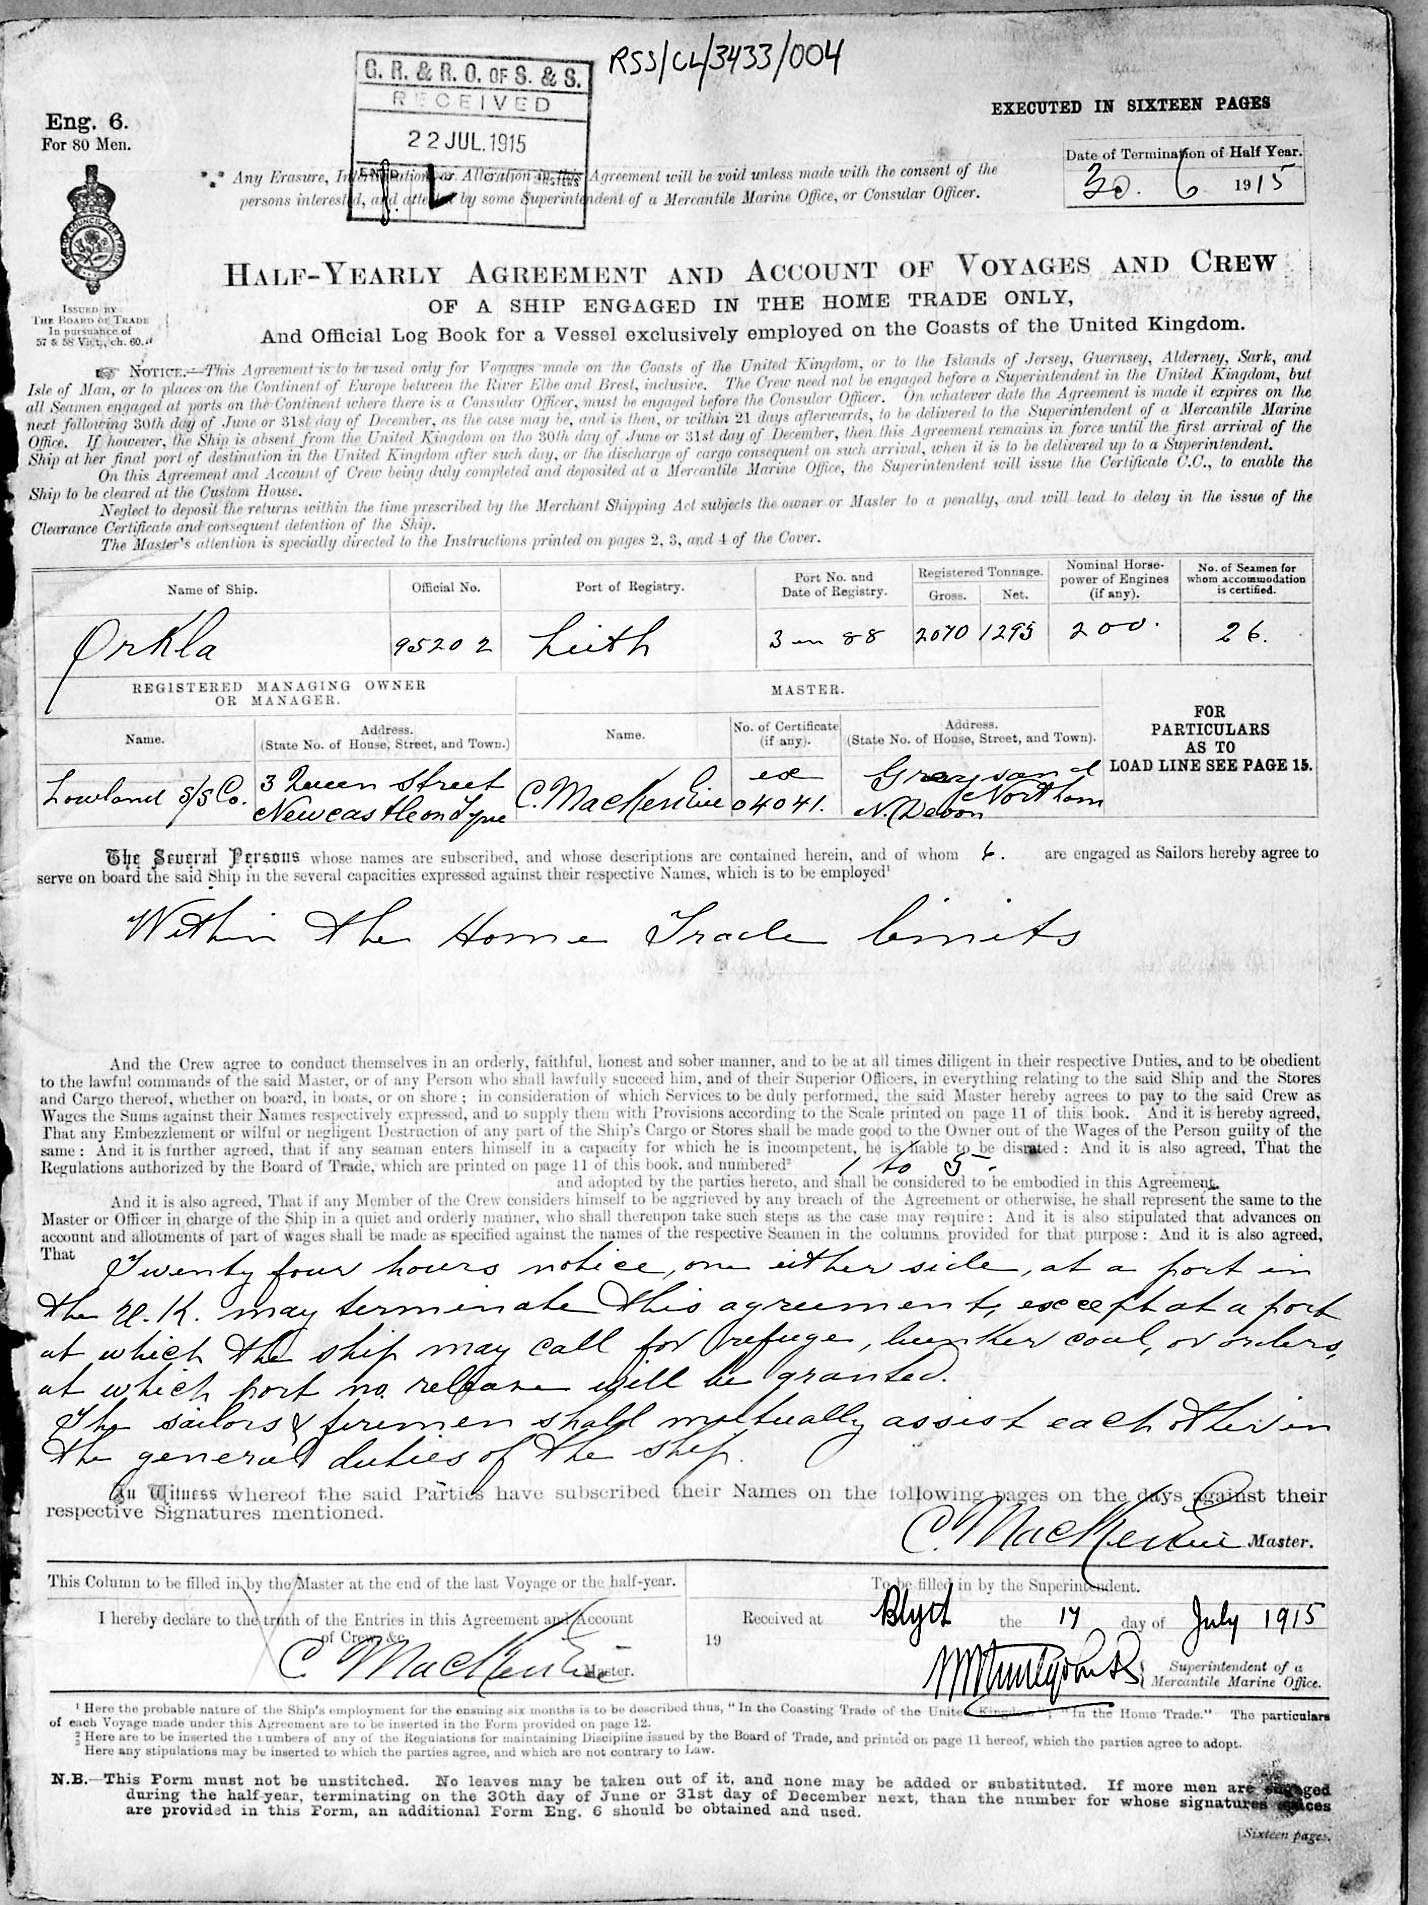 RSS/CL/3433/004
G. R. & R. O. OF S. & S.
RECEIVED
22 JUL. 1915
EXECUTED IN SIXTEEN PAGES
Eng. 6.
For 80 Men.
Date of Termination of Half Year.
30. 6 1915
Any Erasure, Interlineation or Alteration in this Agreement will be void unless made with the consent of the
persons interested, and attested by some Superintendent of a Mercantile Marine Office, or Consular Officer.
ISSUED BY
THE BOARD OF TRADE
In pursuance of
57 & 58 Vict., ch. 60.
HALF-YEARLY AGREEMENT AND ACCOUNT OF VOYAGES AND CREW
OF A SHIP ENGAGED IN THE HOME TRADE ONLY,
And Official Log Book for a Vessel exclusively employed on the Coasts of the United Kingdom.
NOTICE.—This Agreement is to be used only for Voyages made on the Coasts of the United Kingdom, or to the Islands of Jersey, Guernsey, Alderney, Sark, and
Isle of Man, or to places on the Continent of Europe between the River Elbe and Brest, inclusive. The Crew need not be engaged before a Superintendent in the United Kingdom, but
all Seamen engaged at ports on the Continent where there is a Consular Officer, must be engaged before the Consular Officer. On whatever date the Agreement is made it expires on the
next following 30th day of June or 31st day of December, as the case may be, and is then, or within 21 days afterwards, to be delivered to the Superintendent of a Mercantile Marine
Office. If however, the Ship is absent from the United Kingdom on the 30th day of June or 31st day of December, then this Agreement remains in force until the first arrival of the
Ship at her final port of destination in the United Kingdom after such day, or the discharge of cargo consequent on such arrival, when it is to be delivered up to a Superintendent.
On this Agreement and Account of Crew being duly completed and deposited at a Mercantile Marine Office, the Superintendent will issue the Certificate C.C., to enable the
Ship to be cleared at the Custom House.
Neglect to deposit the returns within the time prescribed by the Merchant Shipping Act subjects the owner or Master to a penalty, and will lead to delay in the issue of the
Clearance Certificate and consequent detention of the Ship.
The Master's attention is specially directed to the Instructions printed on pages 2, 3, and 4 of the Cover.
Name of Ship. Official No. Port of Registry. Port No. and Date of Registry. Registered Tonnage. Gross. Net. Nominal Horse-power of Engines (if any). No. of Seamen for whom accommodation is certified.
Orkla 95202 Leith 3 in 88 2070 1295 200. 26.
REGISTERED MANAGING OWNER OR MANAGER. MASTER.
FOR PARTICULARS AS TO LOAD LINE SEE PAGE 15.
Name. Address. (State No. of House, Street, and Town.) Name. No. of Certificate (if any). Address. (State No. of House, Street, and Town).
Lowland S/S Co. 3 Queen Street C. MacKenzie 04041.
Newcastle on Tyne Northam N. Devon
The Several Persons whose names are subscribed, and whose descriptions are contained herein, and of whom 6. are engaged as Sailors hereby agree to
serve on board the said Ship in the several capacities expressed against their respective Names, which is to be employed¹
Within the Home Trade limits
And the Crew agree to conduct themselves in an orderly, faithful, honest and sober manner, and to be at all times diligent in their respective Duties, and to be obedient
to the lawful commands of the said Master, or of any Person who shall lawfully succeed him, and of their Superior Officers, in everything relating to the said Ship and the Stores
and Cargo thereof, whether on board, in boats, or on shore; in consideration of which Services to be duly performed, the said Master hereby agrees to pay to the said Crew as
Wages the Sums against their Names respectively expressed, and to supply them with Provisions according to the Scale printed on page 11 of this book. And it is hereby agreed,
That any Embezzlement or wilful or negligent Destruction of any part of the Ship's Cargo or Stores shall be made good to the Owner out of the Wages of the Person guilty of the
same: And it is further agreed, that if any seaman enters himself in a capacity for which he is incompetent, he is liable to be disrated: And it is also agreed, That the
Regulations authorized by the Board of Trade, which are printed on page 11 of this book, and numbered² 1 to 5.
and adopted by the parties hereto, and shall be considered to be embodied in this Agreement.
And it is also agreed, That if any Member of the Crew considers himself to be aggrieved by any breach of the Agreement or otherwise, he shall represent the same to the
Master or Officer in charge of the Ship in a quiet and orderly manner, who shall thereupon take such steps as the case may require: And it is also stipulated that advances on
account and allotments of part of wages shall be made as specified against the names of the respective Seamen in the columns provided for that purpose: And it is also agreed,
That Twenty four hours notice, on either side, at a port in
the U.K. may terminate this agreement, except at a port
at which the ship may call for refuge, bunker coal, or orders,
at which port no release will be granted.
The sailors & firemen shall mutually assist each other in
the general duties of the ship.
In Witness whereof the said Parties have subscribed their Names on the following pages on the days against their
respective Signatures mentioned.
C. MacKenzie Master.
This Column to be filled in by the Master at the end of the last Voyage or the half-year.
I hereby declare to the truth of the Entries in this Agreement and Account
of Crew, &c.
C MacKenzie Master.
19
To be filled in by the Superintendent.
Received at Blyth the 17 day of July 1915
Superintendent of a
Mercantile Marine Office.
¹ Here the probable nature of the Ship's employment for the ensuing six months is to be described thus, "In the Coasting Trade of the United Kingdom"; "In the Home Trade." The particulars
of each Voyage made under this Agreement are to be inserted in the Form provided on page 12.
² Here are to be inserted the numbers of any of the Regulations for maintaining Discipline issued by the Board of Trade, and printed on page 11 hereof, which the parties agree to adopt.
³ Here any stipulations may be inserted to which the parties agree, and which are not contrary to Law.
N.B.—This Form must not be unstitched. No leaves may be taken out of it, and none may be added or substituted. If more men are engaged
during the half-year, terminating on the 30th day of June or 31st day of December next, than the number for whose signatures spaces
are provided in this Form, an additional Form Eng. 6 should be obtained and used.
[Sixteen pages.